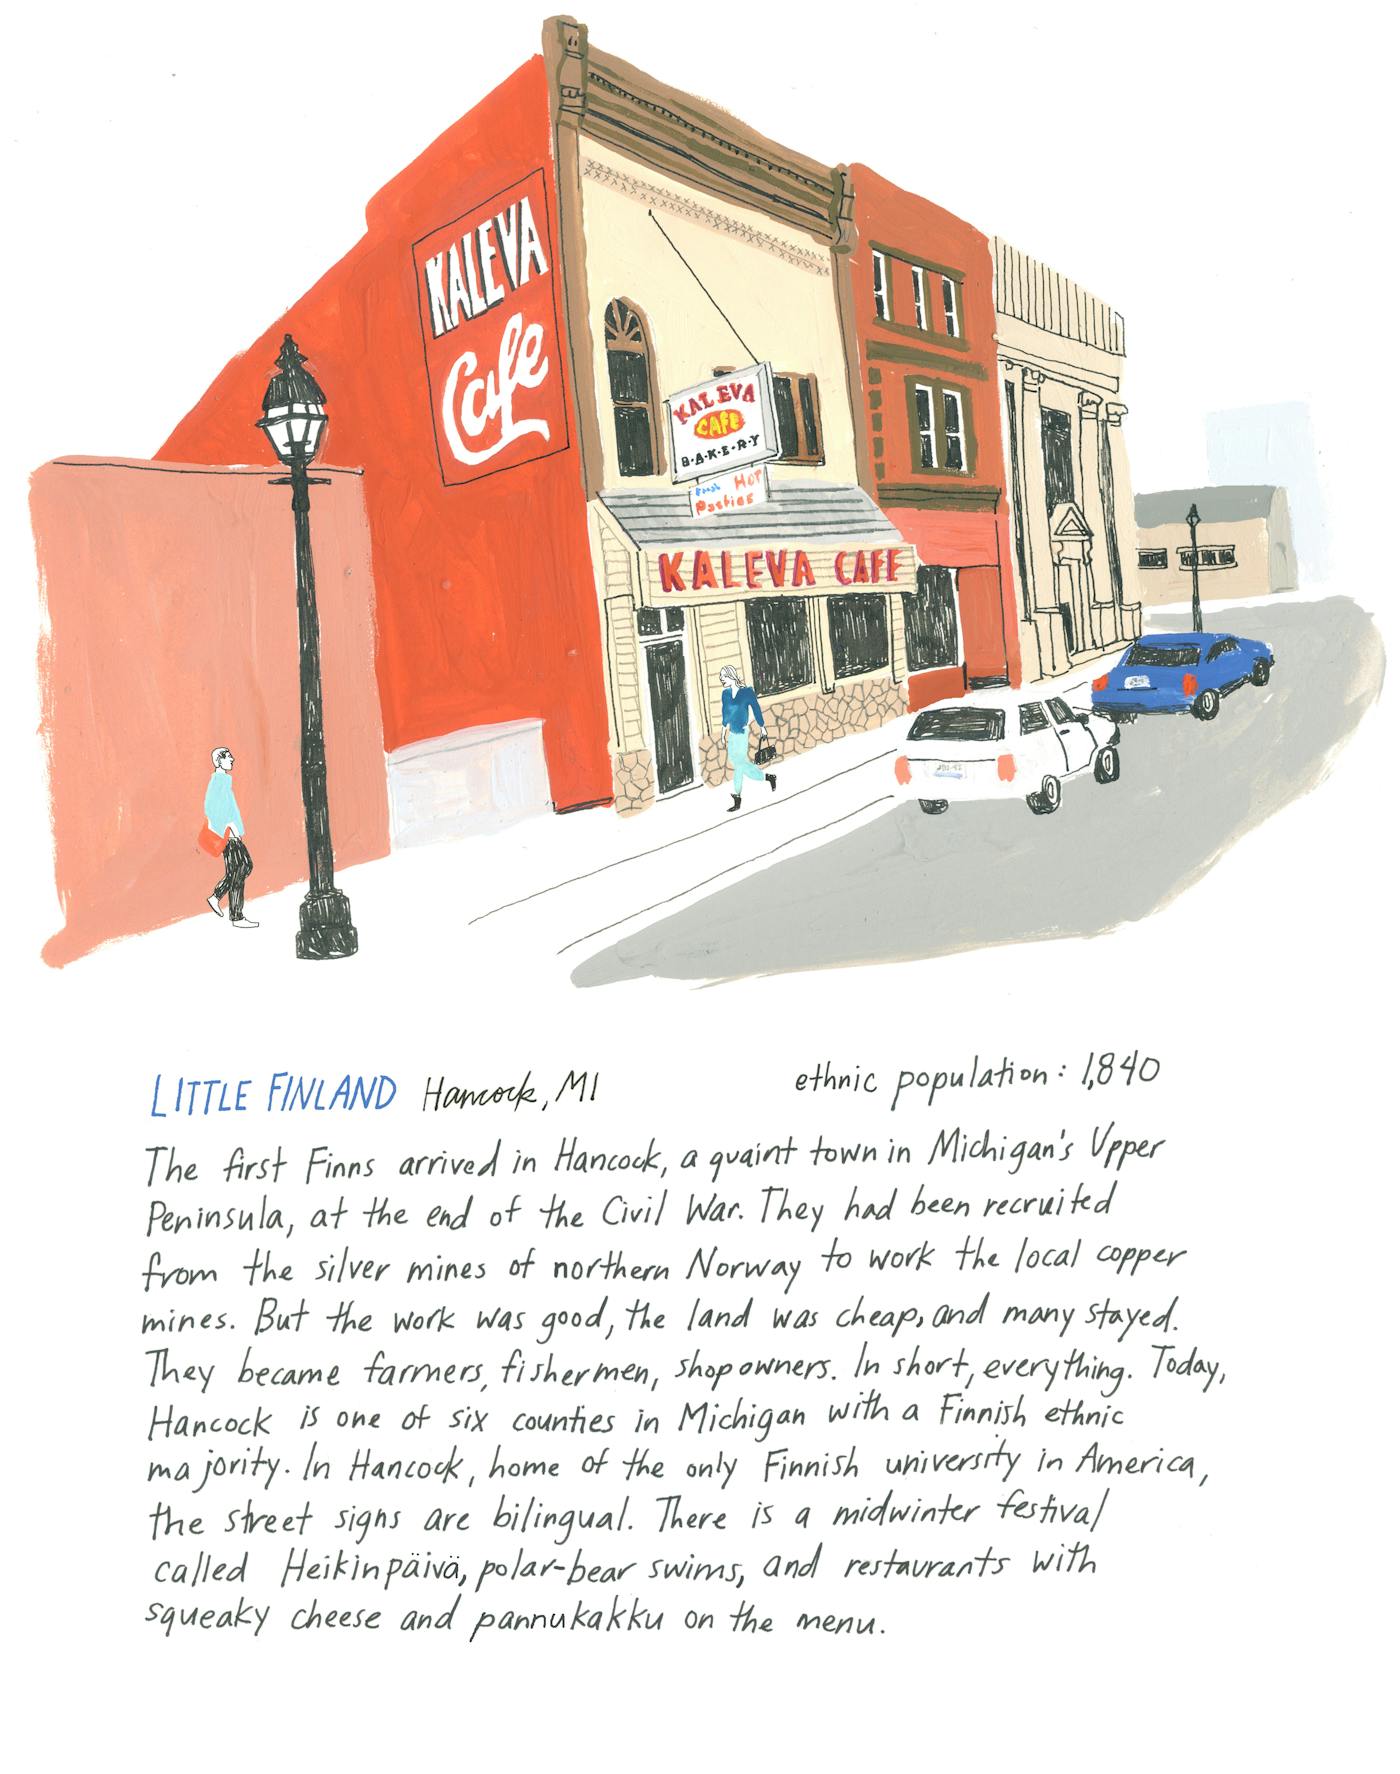 KALEVA
Cafe
KALEVA
CAFE
B·A·K·E·R·Y
Fresh HOT
Pasties
KALEVA CAFE
LITTLE FINLAND Hancock, MI
ethnic population: 1,840
The first Finns arrived in Hancock, a quaint town in Michigan's Upper
Peninsula, at the end of the Civil War. They had been recruited
from the silver mines of northern Norway to work the local copper
mines. But the work was good, the land was cheap, and many stayed.
They became farmers, fishermen, shopowners. In short, everything. Today,
Hancock is one of six counties in Michigan with a Finnish ethnic
majority. In Hancock, home of the only Finnish university in America,
the street signs are bilingual. There is a midwinter festival
called Heikinpäivä, polar-bear swims, and restaurants with
squeaky cheese and pannukakku on the menu.